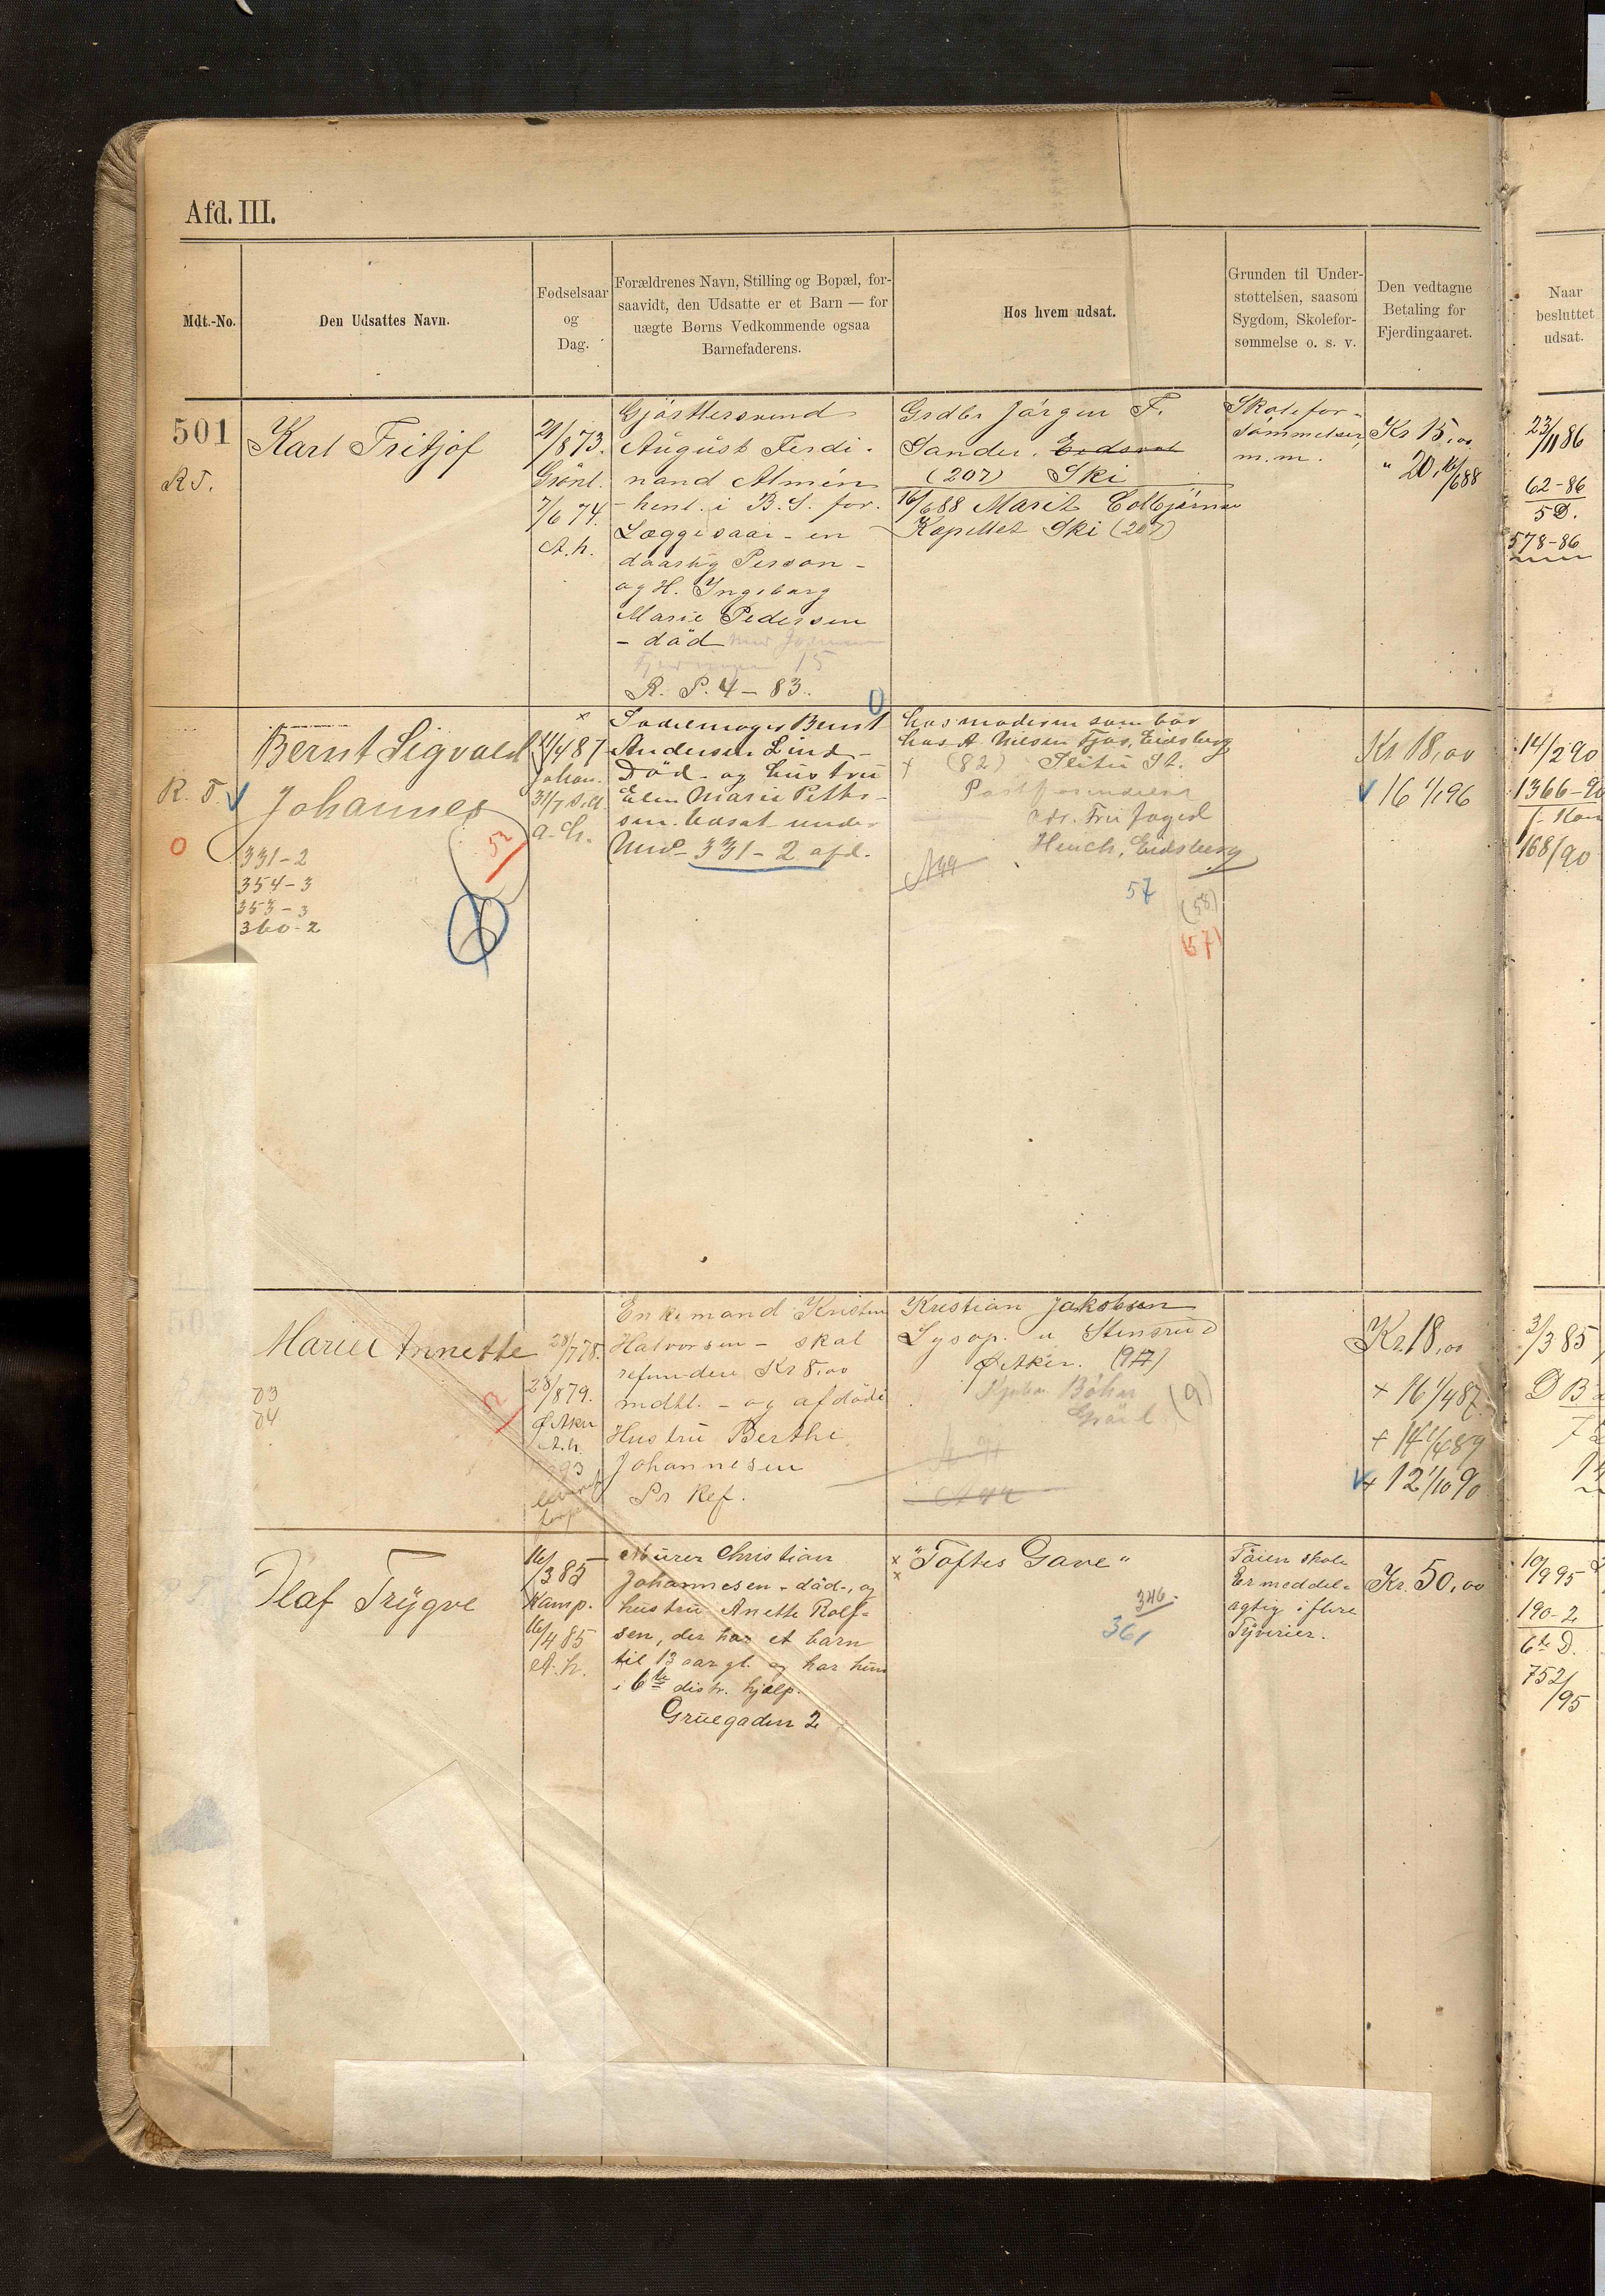 Afd. III.
Mdt.-No.
Den Udsattes Navn.
Fødselsaar
og
Dag.
Forældrenes Navn, Stilling og Bopæl, for-
saavidt, den Udsatte er et Barn — for
uægte Børns Vedkommende ogsaa
Barnefaderens.
Hos hvem udsat.
Grunden til Under-
støttelsen, saasom
Sygdom, Skolefor-
sømmelse o. s. v.
Den vedtagne
Betaling for
Fjerdingaaret.
Naar
besluttet
udsat.
501
R.T.
Karl Fritjof
21/8 73.
Grönl.
7/6 74.
A.h.
Gjörtlersvend
August Ferdi-
nand Almén
- hent. i B. S. for
Læggesaar - en
daarlig Person -
og H. Ingeborg
Marie Pedersen
- död
15
R. P. 4 - 83.
Grdbr Jörgen F.
Sander, Eidsvol
(207) Ski
16/6 88 Marit Colbjörnsen
Kapellet Ski (207)
Skolefor-
sömmelser
m.m.
Kr 15,00
" 20, 16/6 88
23/11 86
62-86
5 D.
578-86
R. T.
Bernt Sigvald
Johannes
331-2
354-3
353-3
360-2
52
11/4 87
Johan.
31/7 s.a.
a.h.
Sadelmager Bernt
Andersen Lind -
Död - og hustru
Elen Marie Petter-
sen. Udsat under
No 331 - 2 afd.
hos moderen som bor
hos A. Nilsen Fjös, Eidsberg
+ (82) Slitu St.
adr. Frk Jagerl
Eidsberg
57
(58)
(57)
Kr 18,00
16 1/1 96
14/2 90
1366-90
168/90
Marie Annette
03
04
28/7 78.
28/8 79.
Ø Aker
A.h.
Enkemand Kristen
Halvorsen - skal
refundere Kr 8,00
mdtl. - og afdöde
Hustru Berthe
Johannesen
Pr Ref.
Kristian Jakobsen
Lysop. u Stensrud
Ø Aker. (97)
(9)
Kr. 18,00
+ 16 1/4 87
+ 14 1/4 89
+ 12 1/10 90
3/3 85
Olaf Trÿgve
16/3 85
Kamp.
16/4 85
A.h.
Murer Christian
Johannesen - död-, og
hustru Anette Rolf-
sen, der har et barn
til 13 aar gl. og har hun
i 6te distr. hjælp.
Gruegaden 2
"Toftes Gave"
346.
361
Töien skole
Er meddel-
agtig i flere
Tyverier.
Kr. 50,00
10/9 95
190-2
6te D.
752/95